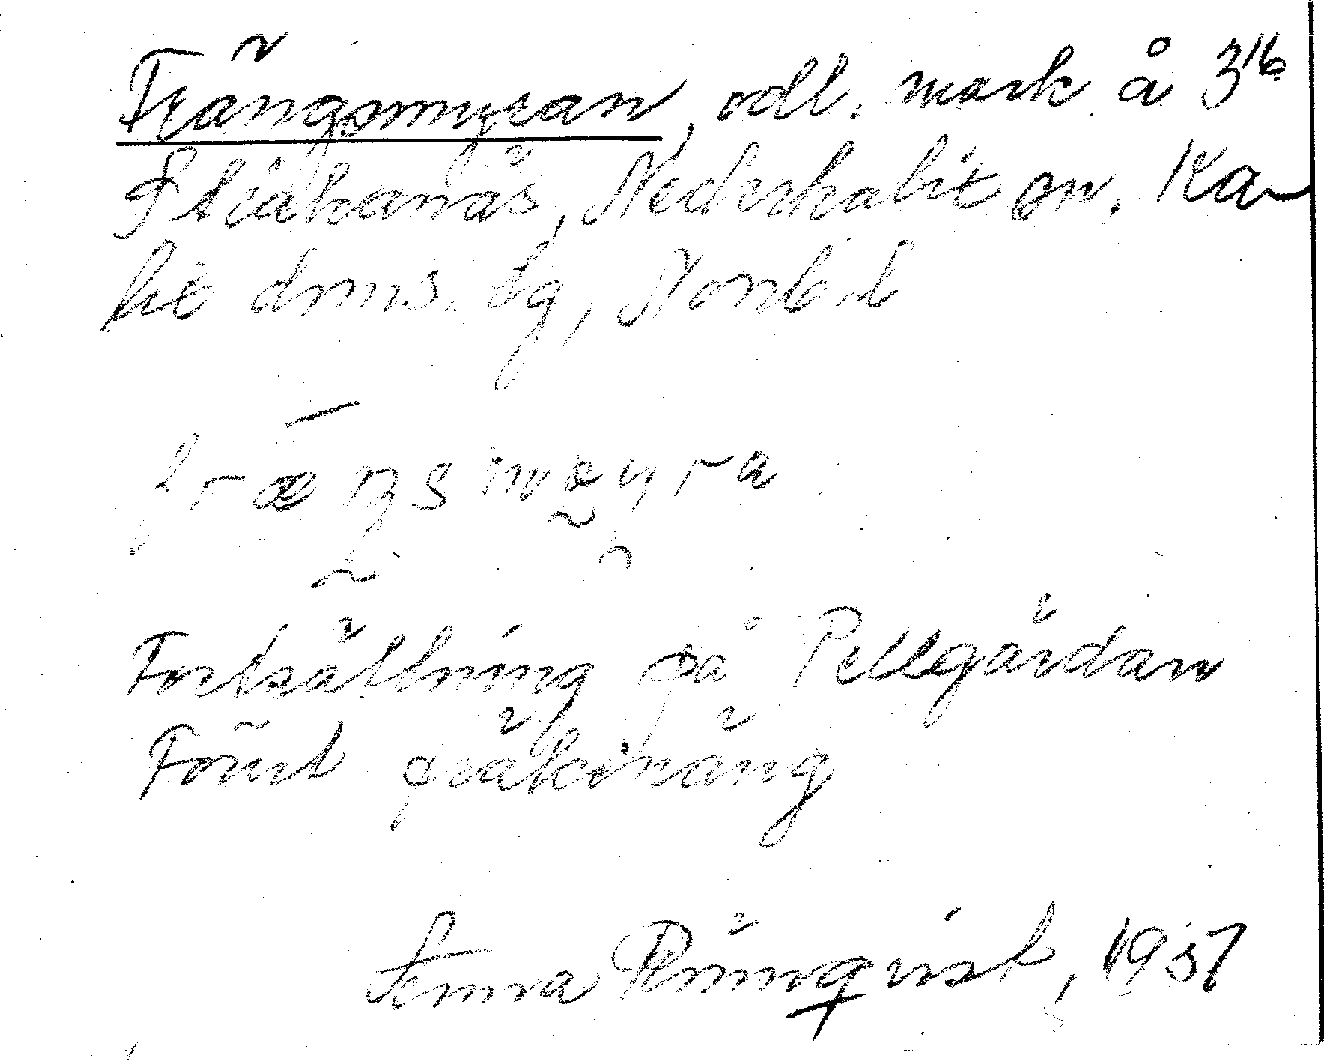 Frängsmyran, odl. mark å 3¹⁶
Pliakanäs, Nederkalix sn. Ka-
lix dms. lg, Norrb. l
fræŋsmøyra
Fortsättning på Pellgårdan
Förut präktinäng
Rönnqvist, 1937